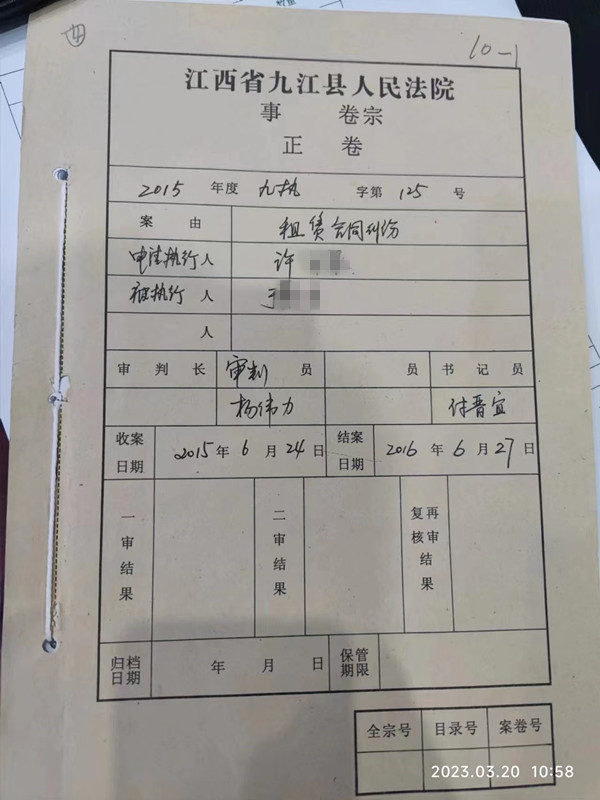 10-1
江西省九江县人民法院
事 卷宗
正 卷
2015 年度 九执 字第 125 号
案 由 租赁合同纠纷
申请执行人 许
被执行人 于
人
审判长 审判员 员 书记员
杨伟力 付晋宜
收案日期 2015年6月24日 结案日期 2016年6月27日
一审结果 二审结果 再审复核结果
归档日期 年 月 日 保管期限
全宗号 目录号 案卷号
2023.03.20 10:58